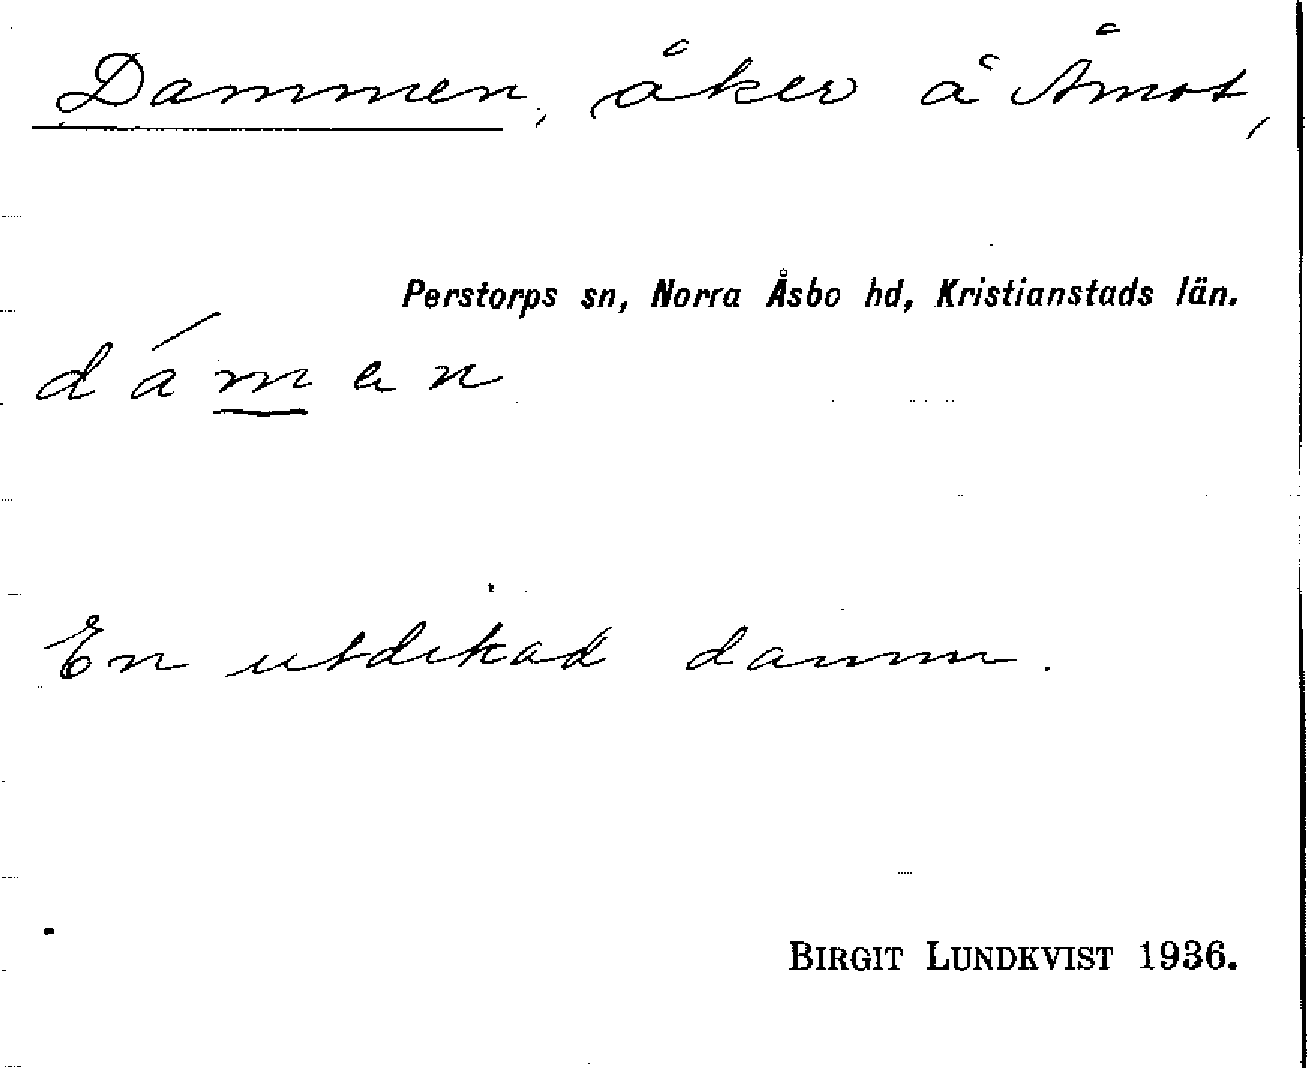 Dammen, åker å Åmot,
Perstorps sn, Norra Åsbo hd, Kristianstads län.
dámen
En utdikad damm.
BIRGIT LUNDKVIST 1936.